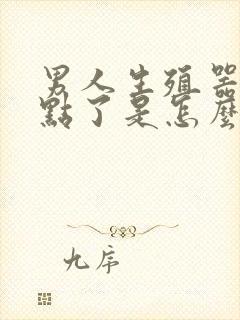 男人生殖器
點了是怎麼
九序